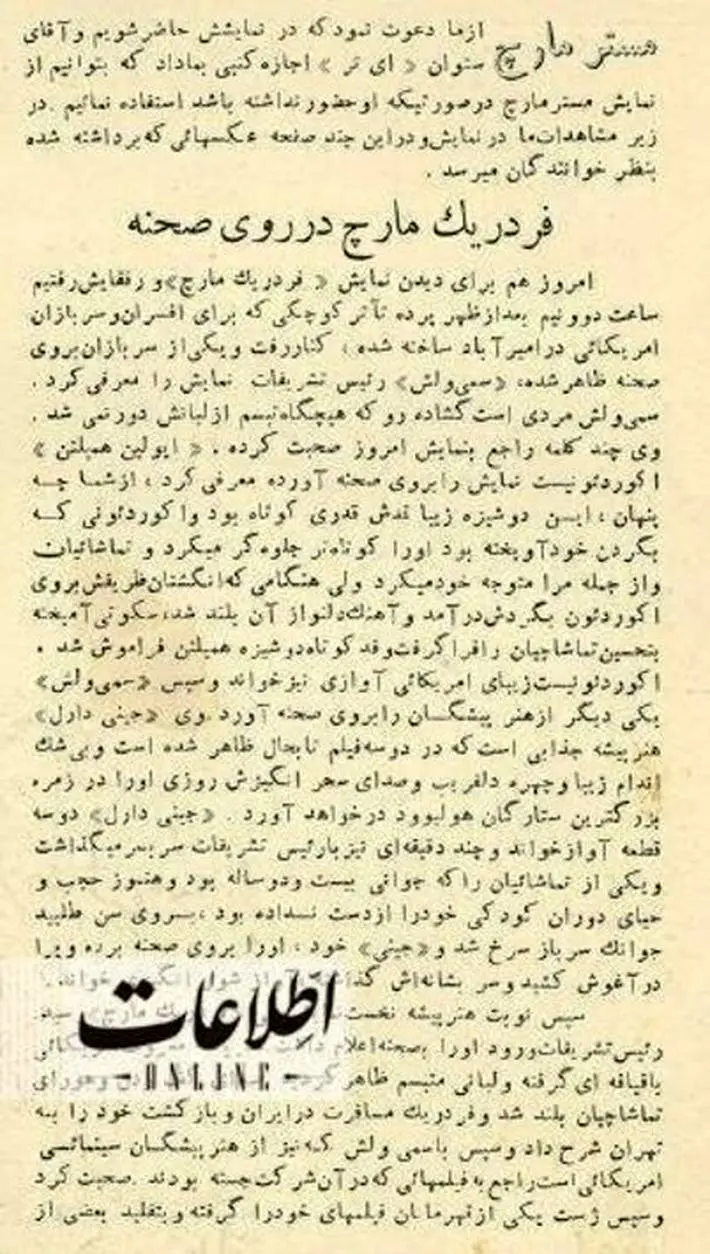 مستر مارچ
ازما دعوت نمود که در نمایشش حاضرشویم و آقای
ستوان « ای تر » اجازه کتبی بماداد که بتوانیم از
نمایش مسترمارچ درصورتیکه اوحضورنداشته باشد استفاده نمائیم . در
زیر مشاهدات‌ما در نمایش‌و دراین چند صفحه عکسهائی که‌برداشته شده
بنظر خوانندگان میرسد .
فردریك مارچ درروی صحنه
امروز هم برای دیدن نمایش « فردریك مارچ»و رفقایش‌رفتیم
ساعت دوونیم بعدازظهر پرده تآتر کوچکی که برای افسران‌وسربازان
امریکائی درامیرآباد ساخته شده ، کناررفت ویکی‌از سربازان‌بروی
صحنه ظاهرشده، «سمی‌ولش» رئیس تشریفات نمایش را معرفی کرد .
سمی‌ولش مردی است گشاده رو که هیچگاه‌تبسم ازلبانش دورنمی شد .
وی چند کلمه راجع بنمایش امروز صحبت کرده . « ایولین همیلتن »
اکوردئونیست نمایش رابروی صحنه آورده معرفی کرد ، ازشما چه
پنهان ، ایـن دوشیزه زیبا قدش قدری کوتاه بود واکوردئونی کـه
بگردن خودآویخته بود اورا کوتاه‌تر جلوه‌گر میکرد و تماشائیان
واز جمله مرا متوجه خودمیکرد ولی هنگامی که‌انگشتان‌ظریفش‌بروی
اکوردئون بگردش‌درآمد و آهنك‌دلنواز آن بلند شد،سکوتی‌آمیخته
بتحسین‌تماشاچیان رافراگرفت‌وقد کوتاه‌دوشیزه همیلتن فراموش شد .
اکوردئونیست‌زیبای امریکائی آوازی نیزخواند وسپس «سمی‌ولش»
یکی دیگر ازهنر پیشگـان رابروی صحنه آورد .وی «جینی دارل»
هنرپیشه جذابی است که در دوسه‌فیلم تابحال ظاهر شده است وبی‌شك
اندام زیبا وچهره دلفریب وصدای سحر انگیزش روزی اورا در زمره
بزرگترین ستارگان هولیوود درخواهد آورد . «جینی دارل» دوسه
قطعه آوازخواند وچند دقیقه‌ای نیزبارئیس تشریفات سربسرمیگذاشت
ویکی از تماشائیان راکه جوانی بیست ودوساله بود وهنـوز حجب و
حیای دوران کودکی خودرا ازدست نـداده بود ،بـروی سن طلبید
جوانك سرباز سرخ شد و«جینی» خود ، اورا بروی صحنه برده ویرا
درآغوش کشید وسر بشانه‌اش
سپس نوبت هنرپیشه
رئیس‌تشریفات‌ورود اورا بصحنه‌اعلام
باقیافه ای‌گرفته ولبانی متبسم ظاهر
تماشاچیان بلند شد وفردریك مسافرت درایران وبازگشت خود را بـه
تهران شرح داد وسپس باسمی ولش که‌نیز از هنرپیشگـان سینمائـی
امریکائی‌است‌راجع به‌فیلمهائی که‌درآن‌شرکت‌جسته بودند .صحبت کرد
وسپس ژست یکی ازقهرمانان فیلمهای خودرا گرفته وبتقلید بعضی از
اطلاعات
ONLINE